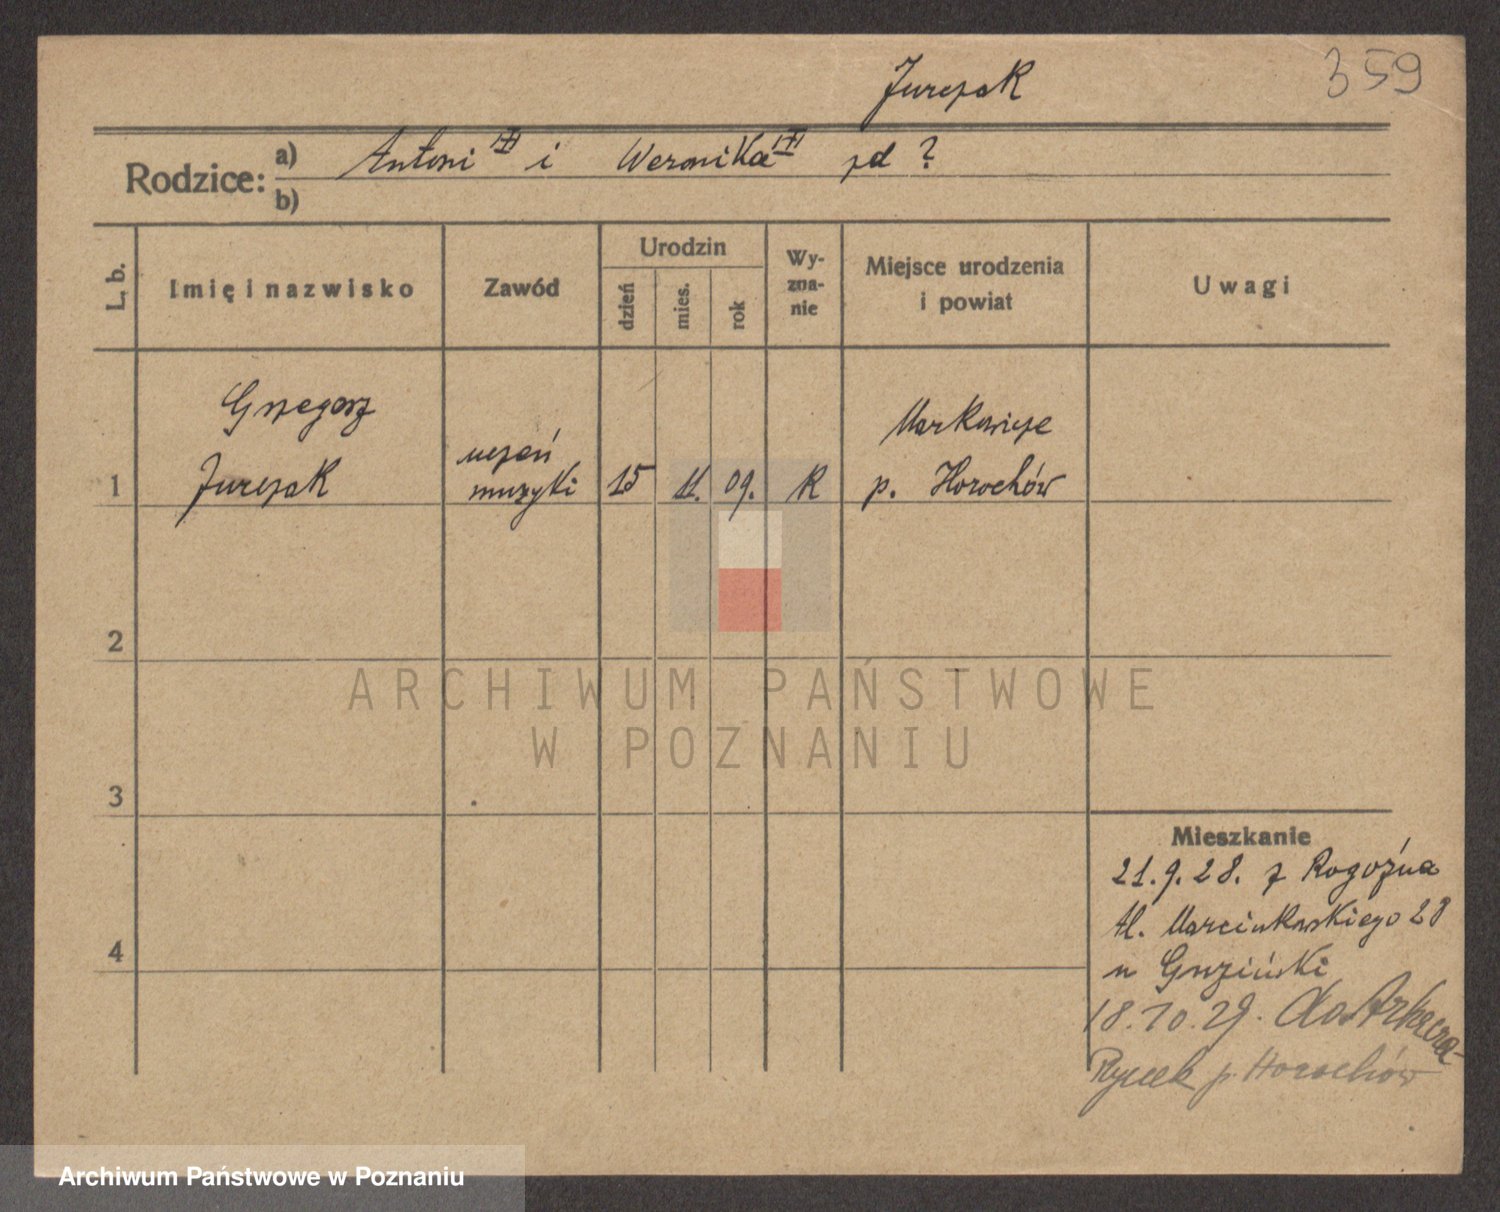 Jurczak
359
Rodzice:
a) Antoni III i Weronika III zd ?
b)
L. b.
Imię i nazwisko
Zawód
Urodzin
dzień
mies.
rok
Wy-
zna-
nie
Miejsce urodzenia
i powiat
Uwagi
Grzegorz
Jurczak
uczeń
muzyki
15
11.
09.
R
Markowicze
p. Horochów
1
2
3
4
Mieszkanie
21.9.28. z Rogoźna
Al. Marcinkowskiego 28
u Gruziński
18.10.29. do
Rynek p. Horochów
ARCHIWUM PAŃSTWOWE
W POZNANIU
Archiwum Państwowe w Poznaniu